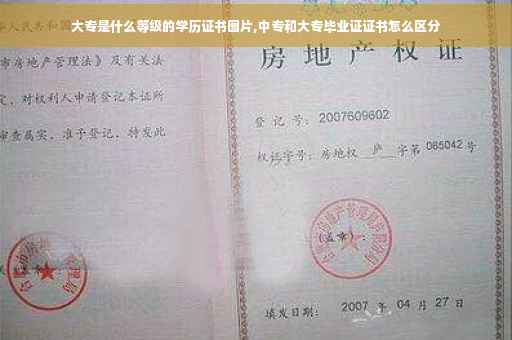 大专是什么等级的学历证书图片,中专和大专毕业证证书怎么区分
市房地产管理法》及有关法
定，对权利人申请登记本证所
审查属实，准予登记，特发此
房地产权证
登 记 号： 2007609602
权证字号：房地权 庐 字第 065042 号
(盖章)：
填发日期： 2007 年 04 月 27 日